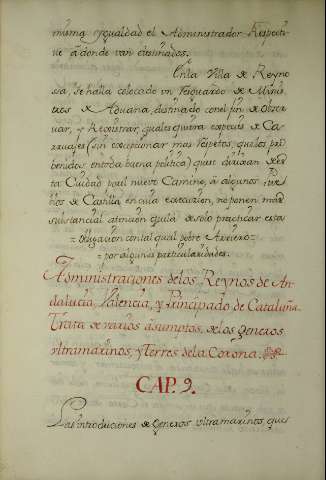 misma ygualdad el Administrador Respecti-
ve a donde van destinados.
En la Villa de Reyno
sa, se halla colocado un Resguardo de Minis
tros de Aduana, destinado con el fin de Obser
var, y Rexistrar, quales quiera especies de Ca-
rruajes (sin excepcionar mas respetos, que los pro
benidos en toda buena politica) que se dirixan de es
ta Ciudad por el nuevo Camino, à algunos Pue-
blos de Castilla, en cuia execucion, no ponen mas
substancial atencion que la de solo practicar esta
obligacion con tal qual pobre Arriero
por algunas particularidades.
Administraciones de los Reynos de An-
dalucia, Valencia, y Principado de Cataluña.
Trata de varios asumptos, de los generos
vltramarinos, y Yerros de la Corona.
CAP. 9.
Las introduciones de Generos vltramarinos, que s